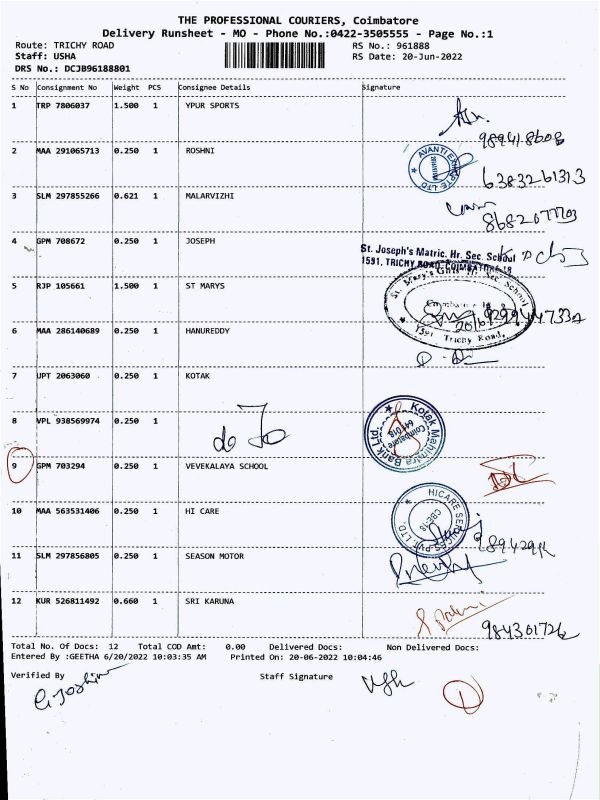 THE PROFESSIONAL COURIERS, Coimbatore
Delivery Runsheet - MO - Phone No.:0422-3505555 - Page No.:1
Route: TRICHY ROAD RS No.: 961888
Staff: USHA RS Date: 20-Jun-2022
DRS No.: DCJB96188801
S No Consignment No Weight PCS Consignee Details Signature
1 TRP 7806037 1.500 1 YPUR SPORTS
989418608
2 MAA 291065713 0.250 1 ROSHNI
AVANTI
6383261313
3 SLM 297855266 0.621 1 MALARVIZHI
4 GPM 708672 0.250 1 JOSEPH
St. Joseph's Matric. Hr. Sec. School
1591, TRICHY ROAD, COIMBATORE-18
5 RJP 105661 1.500 1 ST MARYS
St. Mary's Hr Sec School
1591 Trichy Road,
6 MAA 286140689 0.250 1 HANUREDDY
7 UPT 2063060 0.250 1 KOTAK
8 VPL 938569974 0.250 1
Kotak Mahindra Bank Ltd.
Coimbatore
641 018
9 GPM 703294 0.250 1 VEVEKALAYA SCHOOL
10 MAA 563531406 0.250 1 HI CARE
HICARE SERVICES PVT. LTD.
CBE-18
11 SLM 297856805 0.250 1 SEASON MOTOR
12 KUR 526811492 0.660 1 SRI KARUNA
Total No. Of Docs: 12 Total COD Amt: 0.00 Delivered Docs: Non Delivered Docs:
Entered By :GEETHA 6/20/2022 10:03:35 AM Printed On: 20-06-2022 10:04:46
Verified By Staff Signature